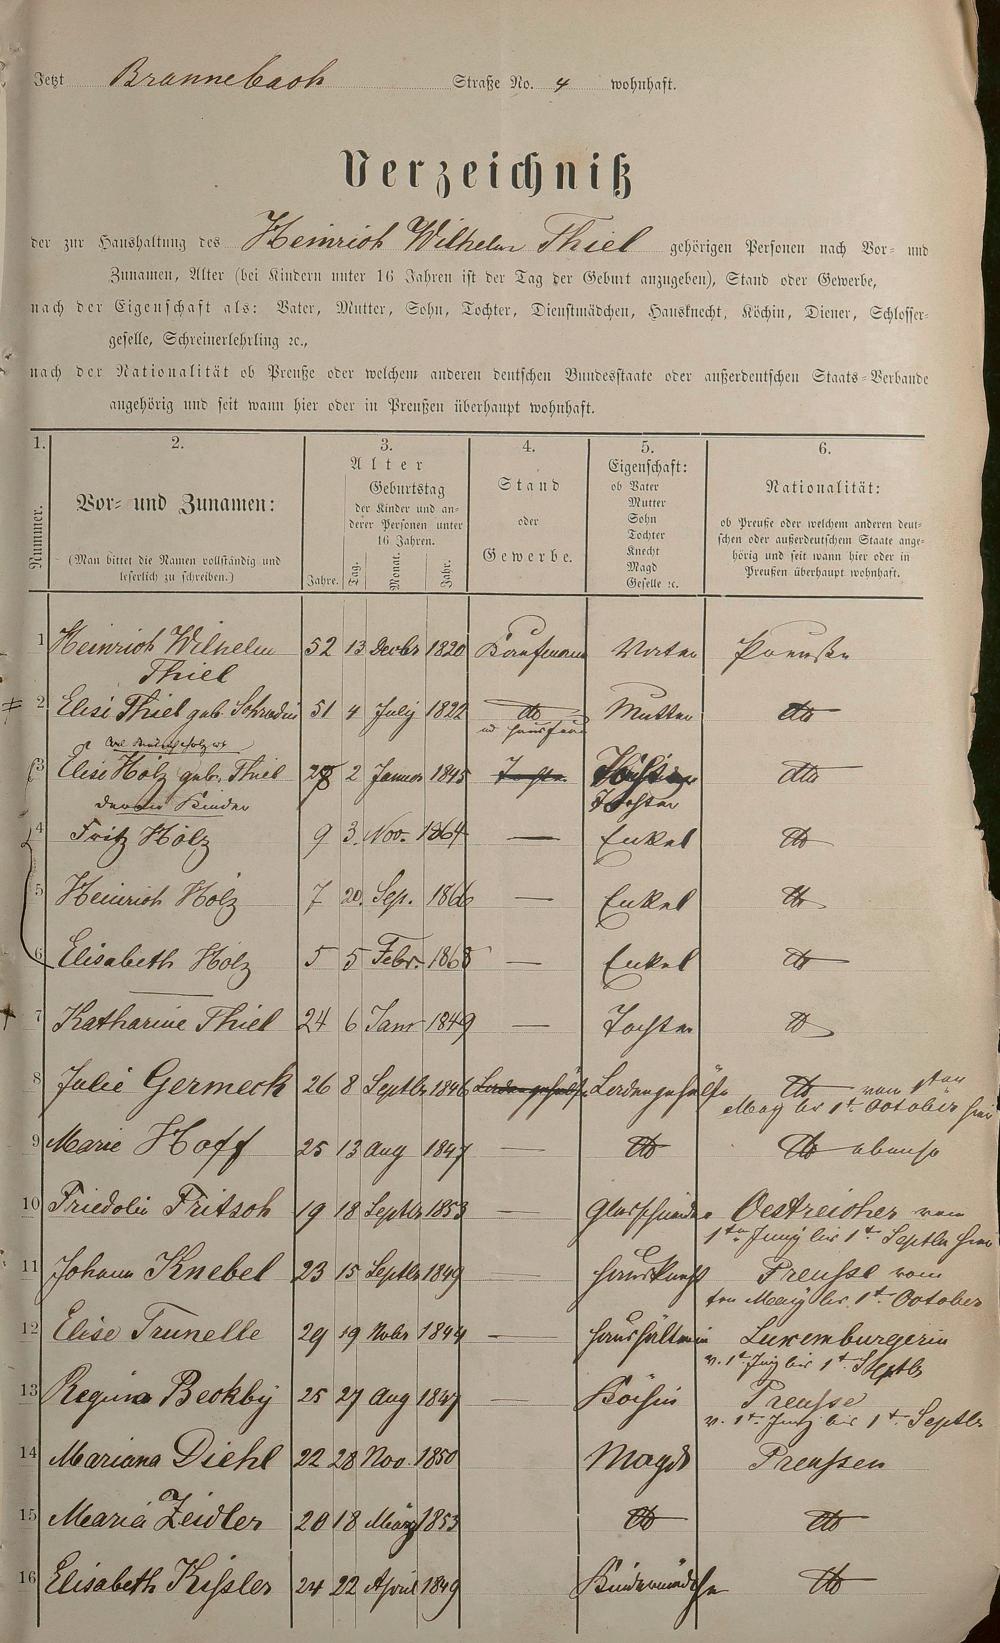 Jetzt Brannebach Straße No. 4 wohnhaft.
Verzeichniß
der zur Haushaltung des Heinrich Wilhelm Thiel gehörigen Personen nach Vor- und
Zunamen, Alter (bei Kindern unter 16 Jahren ist der Tag der Geburt anzugeben), Stand oder Gewerbe,
nach der Eigenschaft als: Vater, Mutter, Sohn, Tochter, Dienstmädchen, Hausknecht, Köchin, Diener, Schlosser-
geselle, Schreinerlehrling ꝛc.,
nach der Nationalität ob Preuße oder welchem anderen deutschen Bundesstaate oder außerdeutschen Staats-Verbande
angehörig und seit wann hier oder in Preußen überhaupt wohnhaft.
1. 2. 3. 4. 5. 6.
Nummer.
Vor- und Zunamen:
(Man bittet die Namen vollständig und
leserlich zu schreiben.)
Alter
Geburtstag
der Kinder und an-
derer Personen unter
16 Jahren.
Jahre. Tag. Monat. Jahr.
Stand
oder
Gewerbe.
Eigenschaft:
ob Vater
Mutter
Sohn
Tochter
Knecht
Magd
Geselle ꝛc.
Nationalität:
ob Preuße oder welchem anderen deut-
schen oder außerdeutschem Staate ange-
hörig und seit wann hier oder in
Preußen überhaupt wohnhaft.
1 Heinrich Wilhelm 52 13 Decbr 1820 Kaufmann Vater Preuße
Thiel
2 Elise Thiel geb. Schradin 51 4 July 1822 dto Mutter dto
ud Hausfrau
3 Elise Holz geb. Thiel 28 2 Januar 1845 Tochter dto
Tochter
deren Kinder
4 Fritz Holz 9 3. Nov. 1864 — Enkel dto
5 Heinrich Holz 7 20. Sep. 1866 — Enkel dto
6 Elisabeth Holz 5 5 Febr. 1868 — Enkel dto
7 Katharine Thiel 24 6 Janr 1849 — Tochter dto
8 Julie Germeck 26 8 Septbr 1846 Ladengehülfin Ladengehülfin dto vom 1ten
May bis 1t. October hier
9 Marie Hoff 25 13 Aug 1847 — dto dto ebenso
10 Friedolin Fritsch 19 18 Septbr 1853 — Glasschneider Oestreicher vom
1ten Juny bis 1t. Septbr hier
11 Johann Knebel 23 15 Septbr 1849 — Hausknecht Preusse vom
ten May bis 1t. October
12 Elise Trunelle 29 19 Nvbr 1844 — Haushälterin Luxemburgerin
v. 1t Juny bis 1t. Septbr
13 Regina Beckby 25 27 Aug 1847 — Köchin Preusse
v. 1t. Juny bis 1t. Septbr
14 Mariana Diehl 22 28 Nov. 1850 Magd Preussen
15 Maria Zeidler 20 18 März 1853 dto dto
16 Elisabeth Kissler 24 22 April 1849 Kindermädchen dto